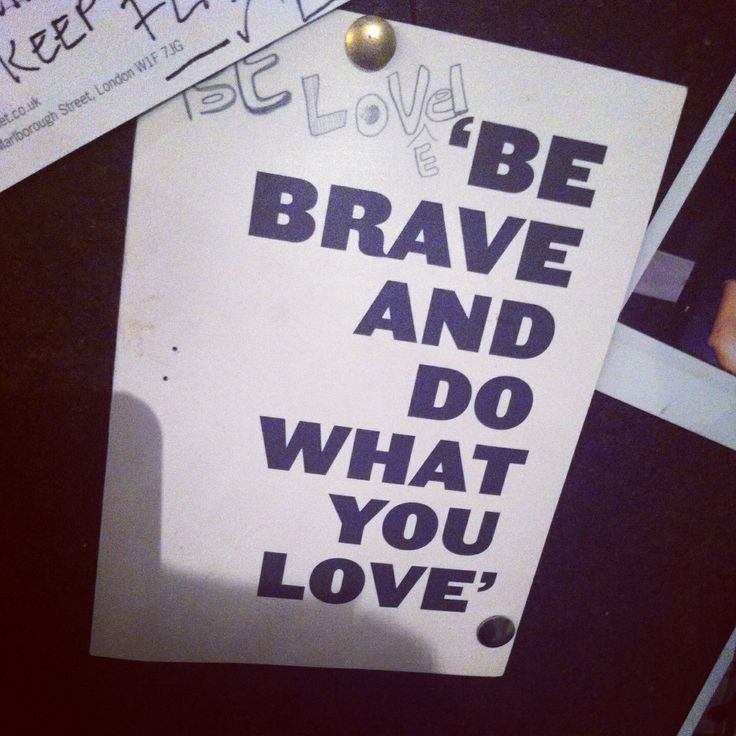 KEEP
et.co.uk
Marlborough Street, London W1F 7JG
BE LOVE
'BE
BRAVE
AND
DO
WHAT
YOU
LOVE'